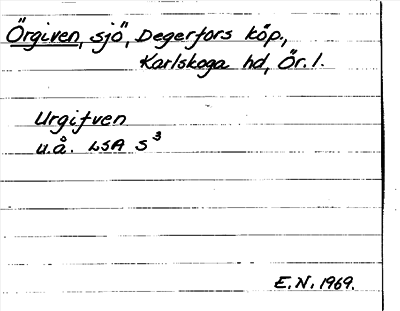 Örgiven, sjö, Degerfors köp.,
Karlskoga hd, Ör. l.
Urgifven
u.å. LSA S³
E.N. 1969.